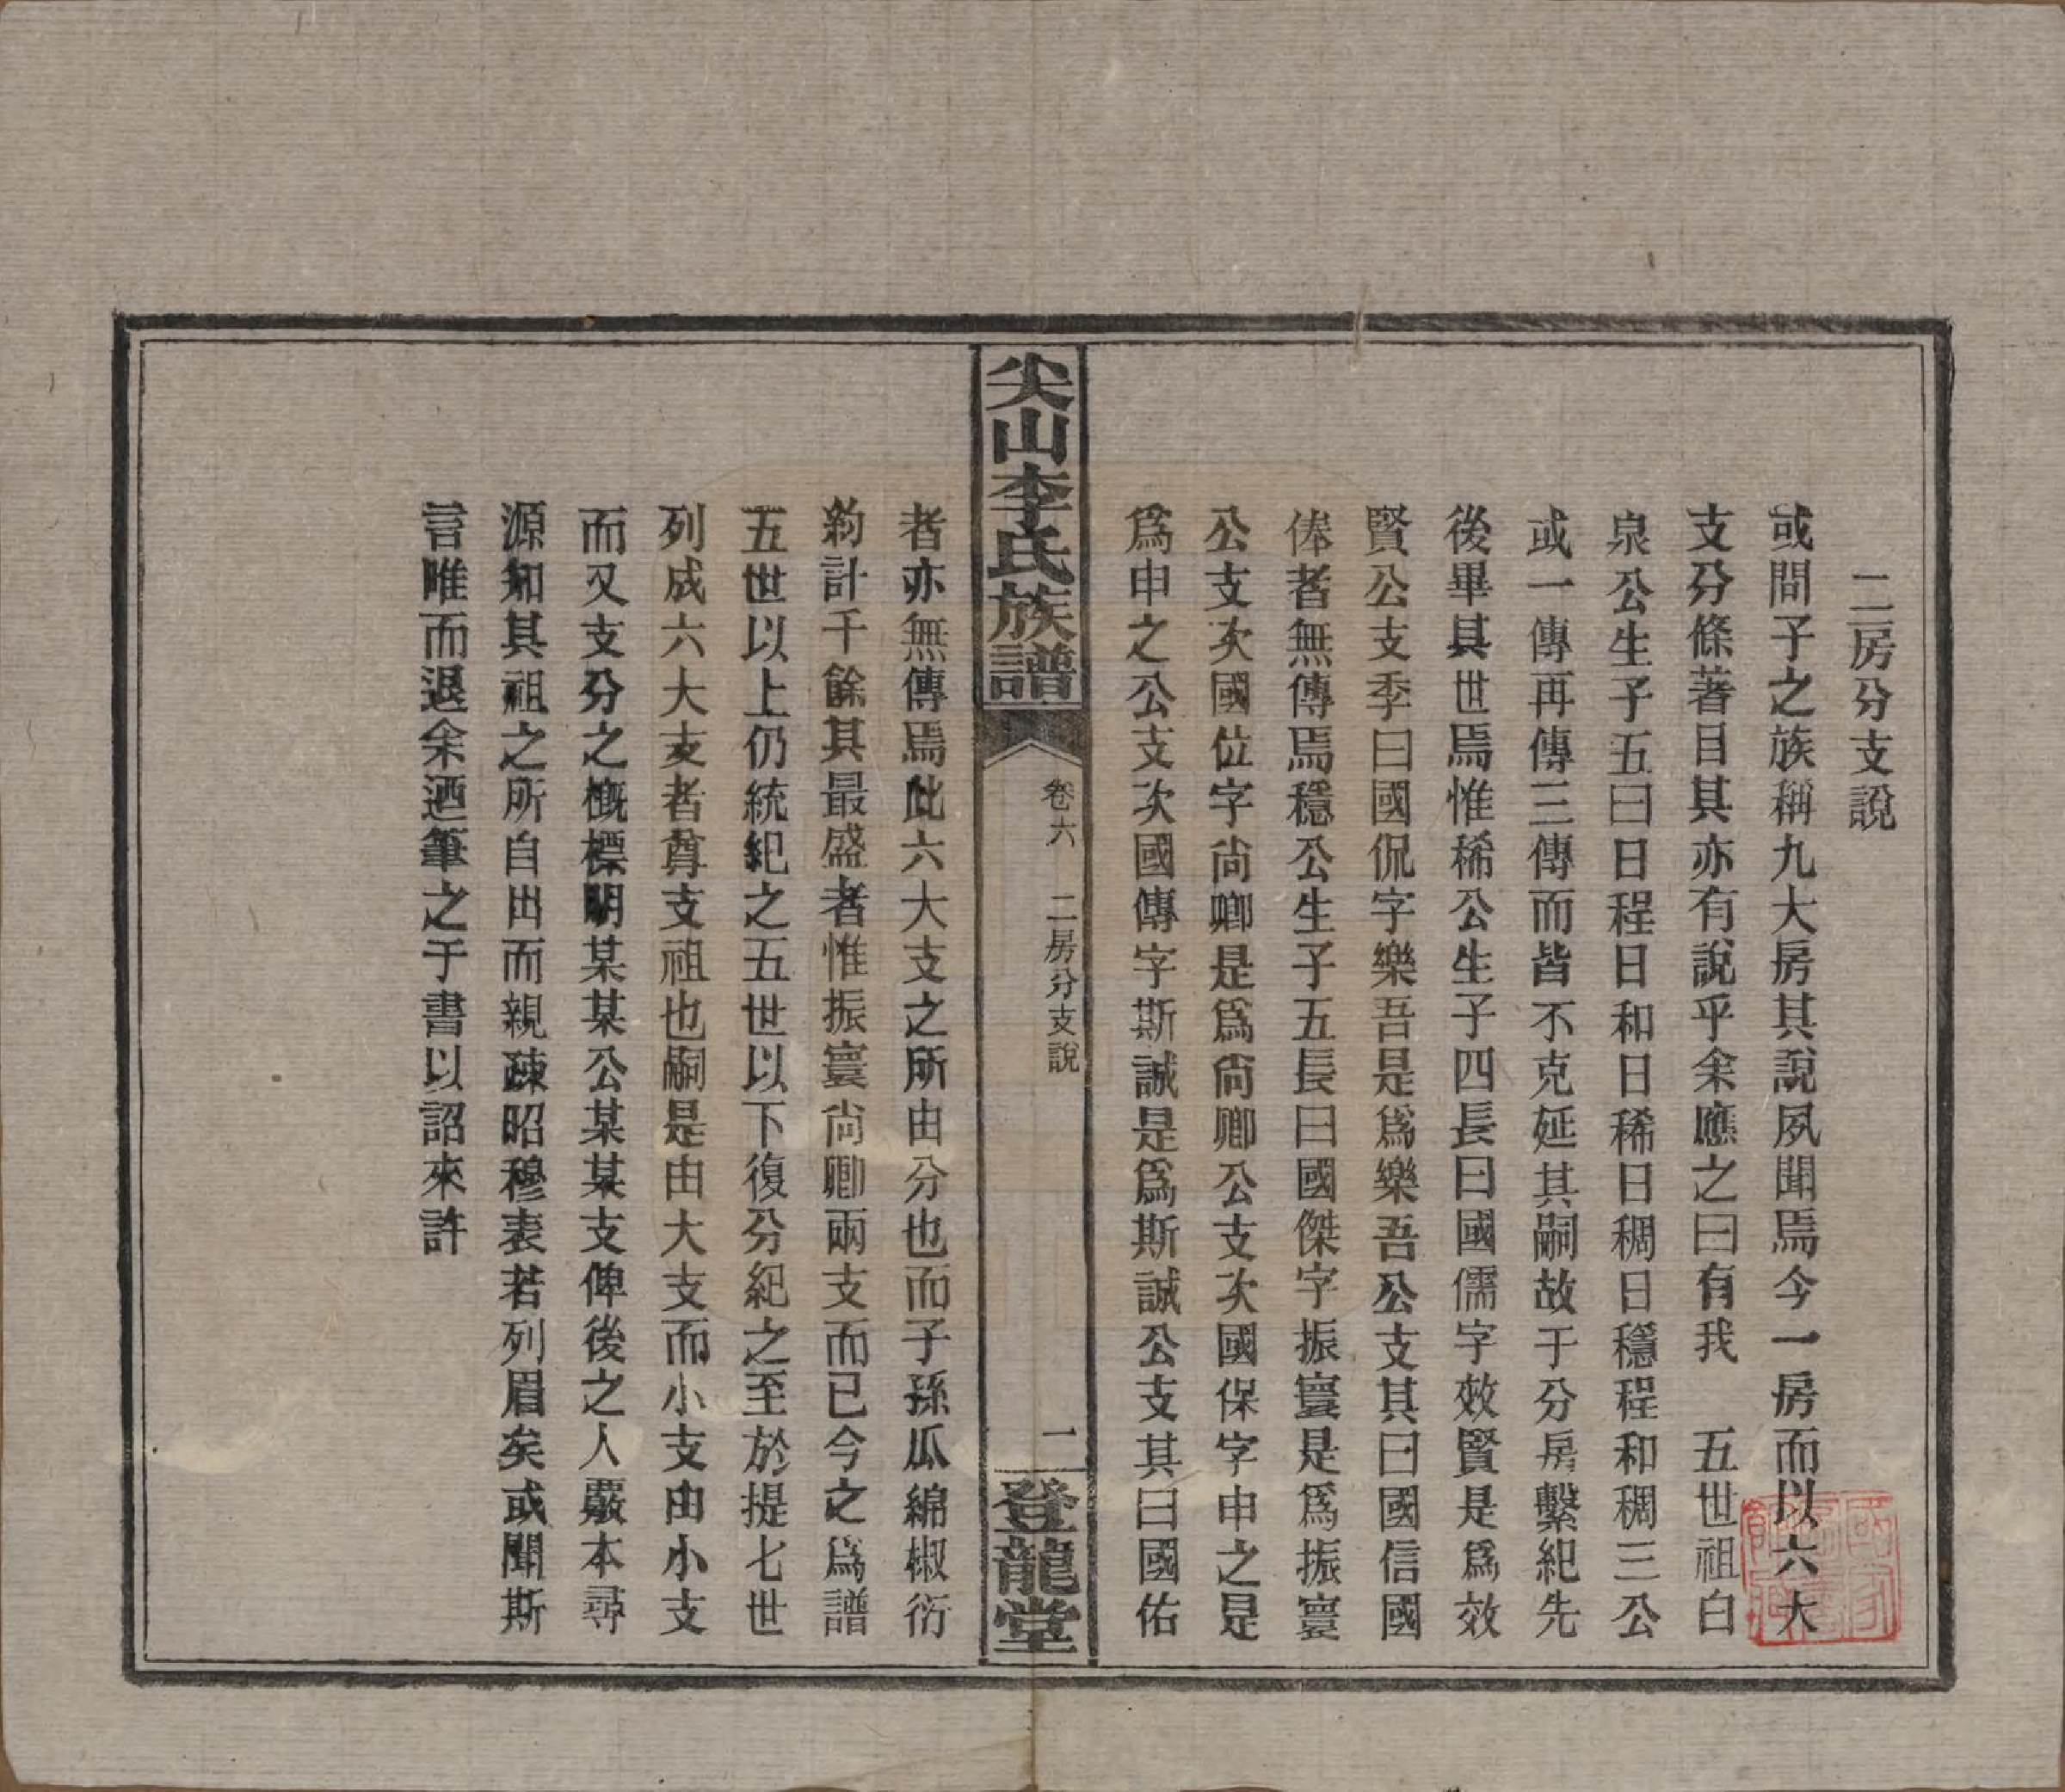 二房分支說
或問子之族稱九大房其說夙聞焉今一房而以六大
支分條著目其亦有說乎余應之曰有我　五世祖白
泉公生子五曰日程日和日稀日稠日穩程和稠三公
或一傳再傳三傳而皆不克延其嗣故于分房繫紀先
後畢其世焉惟稀公生子四長曰國儒字效賢是爲效
賢公支季曰國侃字樂吾是爲樂吾公支其曰國信國
俸者無傳焉穩公生子五長曰國傑字振寰是爲振寰
公支次國位字尚卿是爲尚卿公支次國保字申之是
爲申之公支次國傳字斯誠是爲斯誠公支其曰國佑
尖山李氏族譜
卷六　二房分支說
二
登龍堂
者亦無傳焉此六大支之所由分也而子孫瓜綿椒衍
約計千餘其最盛者惟振寰尚卿兩支而已今之爲譜
五世以上仍統紀之五世以下復分紀之至於提七世
列成六大支者尊支祖也嗣是由大支而小支由小支
而又支分之槪標明某某公某某支俾後之人覈本尋
源知其祖之所自出而親疎昭穆表若列眉矣或聞斯
言唯而退余迺筆之于書以詔來許